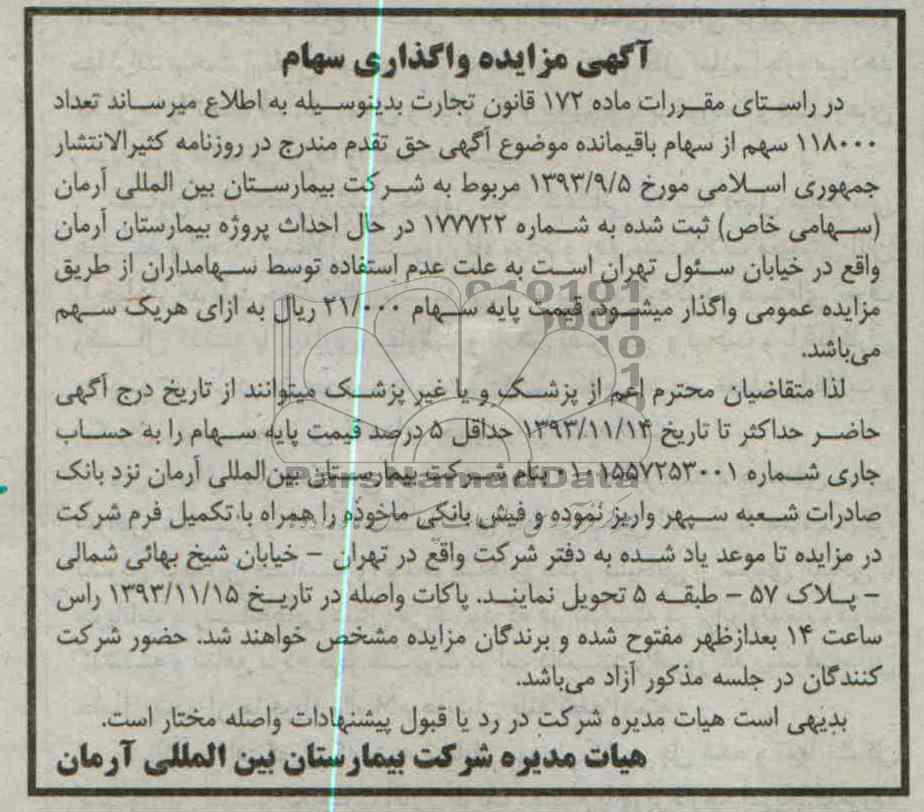 آگهی مزایده واگذاری سهام
در راستای مقررات ماده ۱۷۲ قانون تجارت بدینوسیله به اطلاع میرساند تعداد
۱۱۸۰۰۰ سهم از سهام باقیمانده موضوع آگهی حق تقدم مندرج در روزنامه کثیرالانتشار
جمهوری اسلامی مورخ ۱۳۹۳/۹/۵ مربوط به شرکت بیمارستان بین المللی آرمان
(سهامی خاص) ثبت شده به شماره ۱۷۷۷۲۲ در حال احداث پروژه بیمارستان آرمان
واقع در خیابان سئول تهران است به علت عدم استفاده توسط سهامداران از طریق
مزایده عمومی واگذار میشود. قیمت پایه سهام ۲۱/۰۰۰ ریال به ازای هریک سهم
می‌باشد.
لذا متقاضیان محترم اعم از پزشک و یا غیر پزشک میتوانند از تاریخ درج آگهی
حاضر حداکثر تا تاریخ ۱۳۹۳/۱۱/۱۴ حداقل ۵ درصد قیمت پایه سهام را به حساب
جاری شماره ۰۱۰۱۵۵۷۲۵۳۰۰۱ بنام شرکت بیمارستان بین‌المللی آرمان نزد بانک
صادرات شعبه سپهر واریز نموده و فیش بانکی ماخوذه را همراه با تکمیل فرم شرکت
در مزایده تا موعد یاد شده به دفتر شرکت واقع در تهران – خیابان شیخ بهائی شمالی
– پلاک ۵۷ – طبقه ۵ تحویل نمایند. پاکات واصله در تاریخ ۱۳۹۳/۱۱/۱۵ راس
ساعت ۱۴ بعدازظهر مفتوح شده و برندگان مزایده مشخص خواهند شد. حضور شرکت
کنندگان در جلسه مذکور آزاد می‌باشد.
بدیهی است هیات مدیره شرکت در رد یا قبول پیشنهادات واصله مختار است.
هیات مدیره شرکت بیمارستان بین المللی آرمان
ParsNamadData